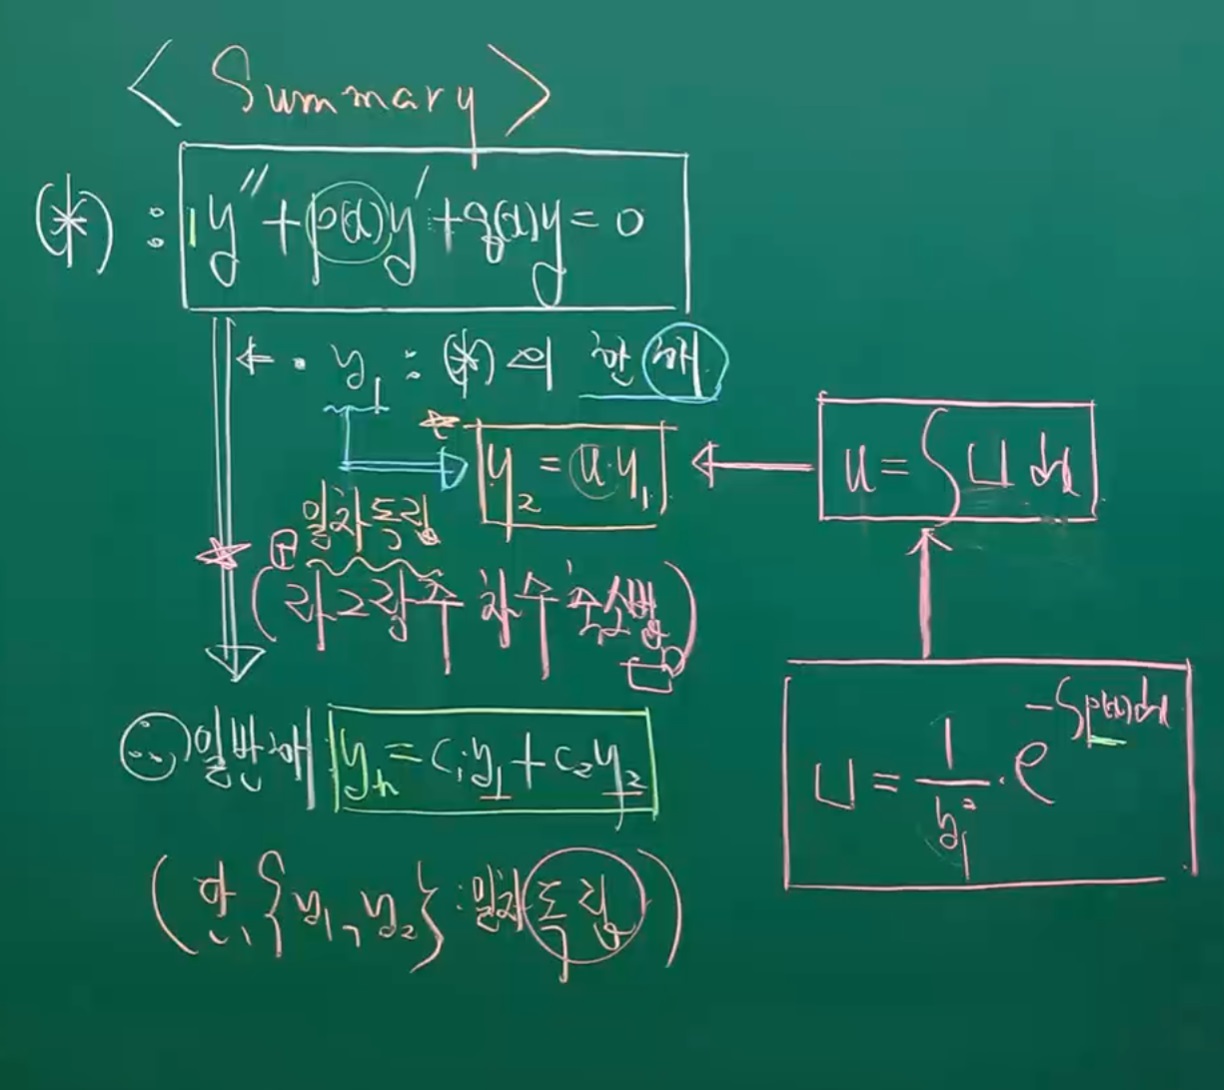 < Summary >
(*) : 1y″ + p(x)y′ + q(x)y = 0
← · y₁ : (*) 의 한 해
y₂ = u·y₁
u = ∫ U dx
일차독립
(라그랑주 차수축소법)
U = 1/y₁² · e^(-∫p(x)dx)
∴) 일반해 yₕ = c₁y₁ + c₂y₂
(단, {y₁, y₂} : 일차독립)